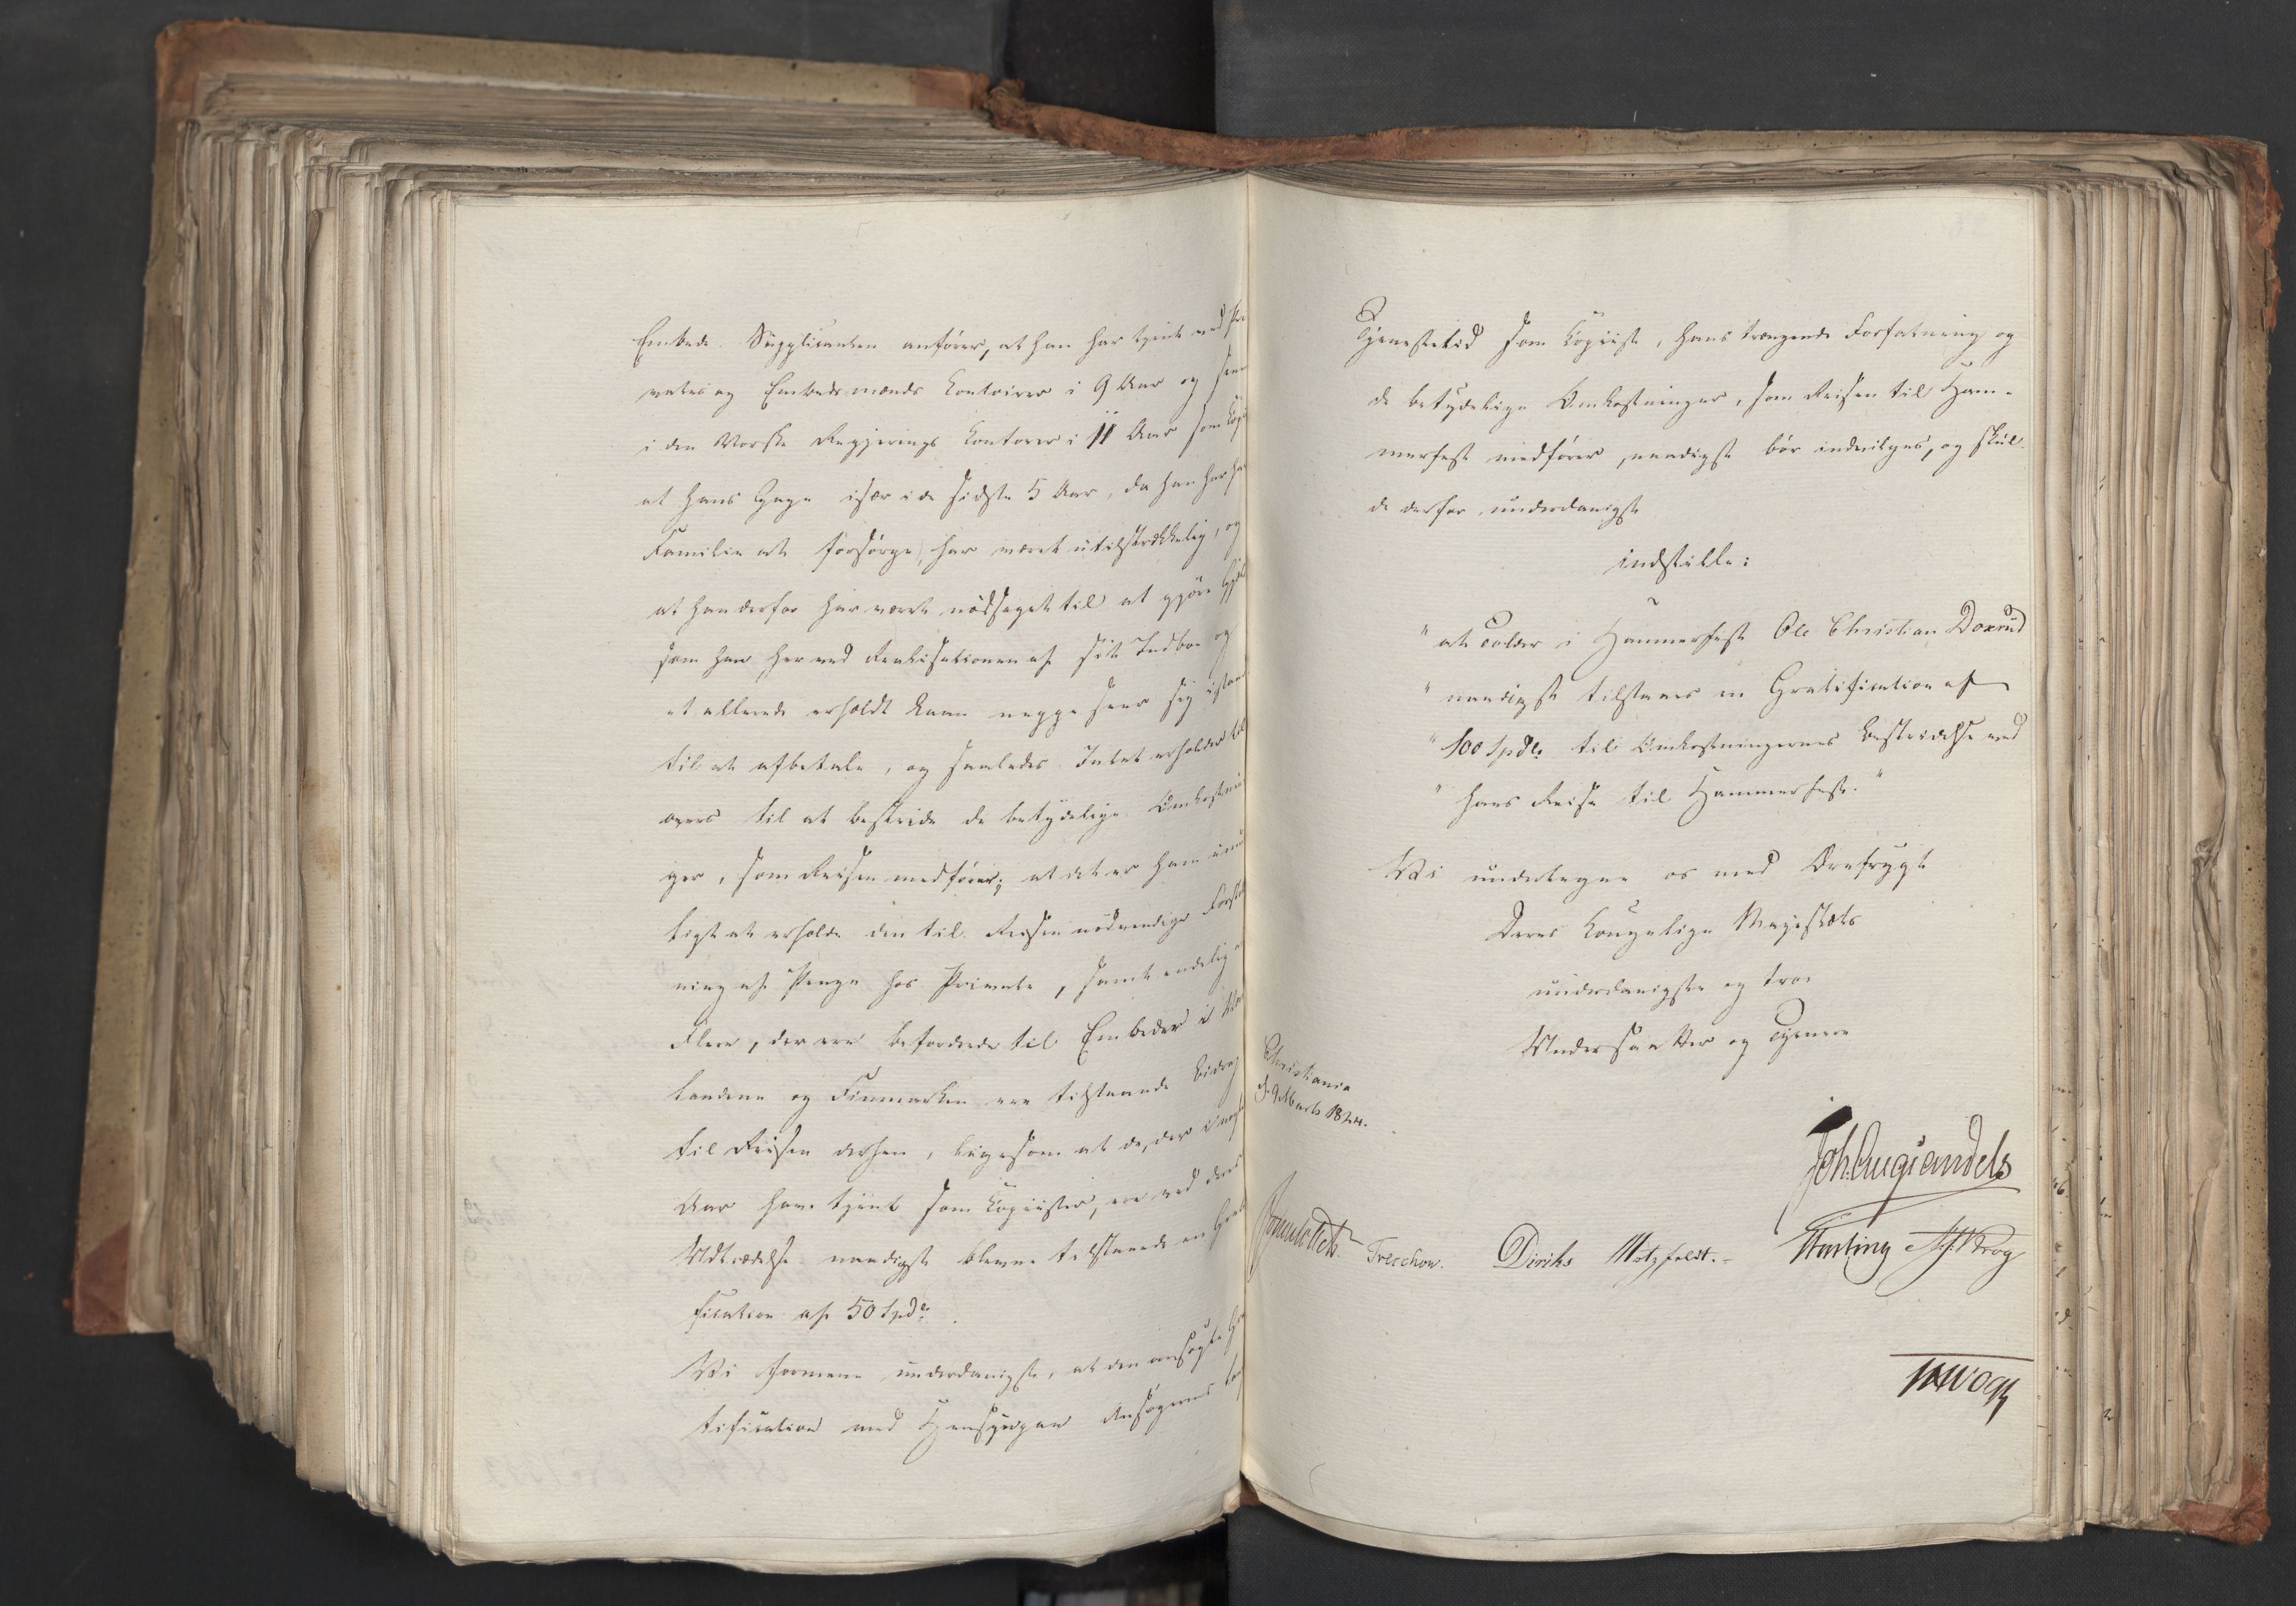 Embede. Supplicanten anfører, at han har tjent ved Pri
vates og Embedsmænds Contoirer i 9 Aar og sene
i den Norske Regjerings Contorer i 11 Aar som Copi
at hans Gage især i de sidste 5 Aar, da han har ha
Familie at forsørge, har været utilstrækkelig, og
at han derfor har været nødsaget til at gjøre Gjæl
som han her ved Realisationen af sit Indboe og
et allerede erholdt Laan neppe seer sig istand
til at afbetale, og saaledes Intet erholder til
overs til at bestride de betydelige Omkostnin
ger, som Reisen medfører; at det er ham umu
ligt at erholde den til Reisen nødvendige Forstræk
ning af Penge hos Private, samt endelig a
Flere, der ere befordrede til Embeder i Nor
landene og Finmarken ere tilstaaede Bidrag
til Reisen derhen, ligesom at de, der i nogle
Aar have tjent som Copiister, ere ved deres
Udtrædelse naadigst blevne tilstaaede en Grati
fication af 50 Spd.
Vi formene underdanigst, at den ansøgte Gra
tification med Hensyn paa Ansøgerens lan
Tjenestetid som Copiist, hans trængende Forfatning og
de betydelige Omkostninger, som Reisen til Ham-
merfest medfører, naadigst bør indvilges, og skul
de derfor underdanigst
indstille:
"at Tolder i Hammerfest Ole Christian Doxrud
"naadigst tilstaaes en Gratification af
"100 Spdlr til Omkostningernes Bestridelse ved
"hans Reise til Hammerfest."
Vi undertegne os med Ærefrygt
Deres Kongelige Majestæts
underdanigste og troe
Undersaatter og Tjenere
Christiania
d. 9 Marts 1824.
Joh Aug Sandels
Sommerhielm Treschow. Diriks Motzfeldt. Fasting Krog
Vogt